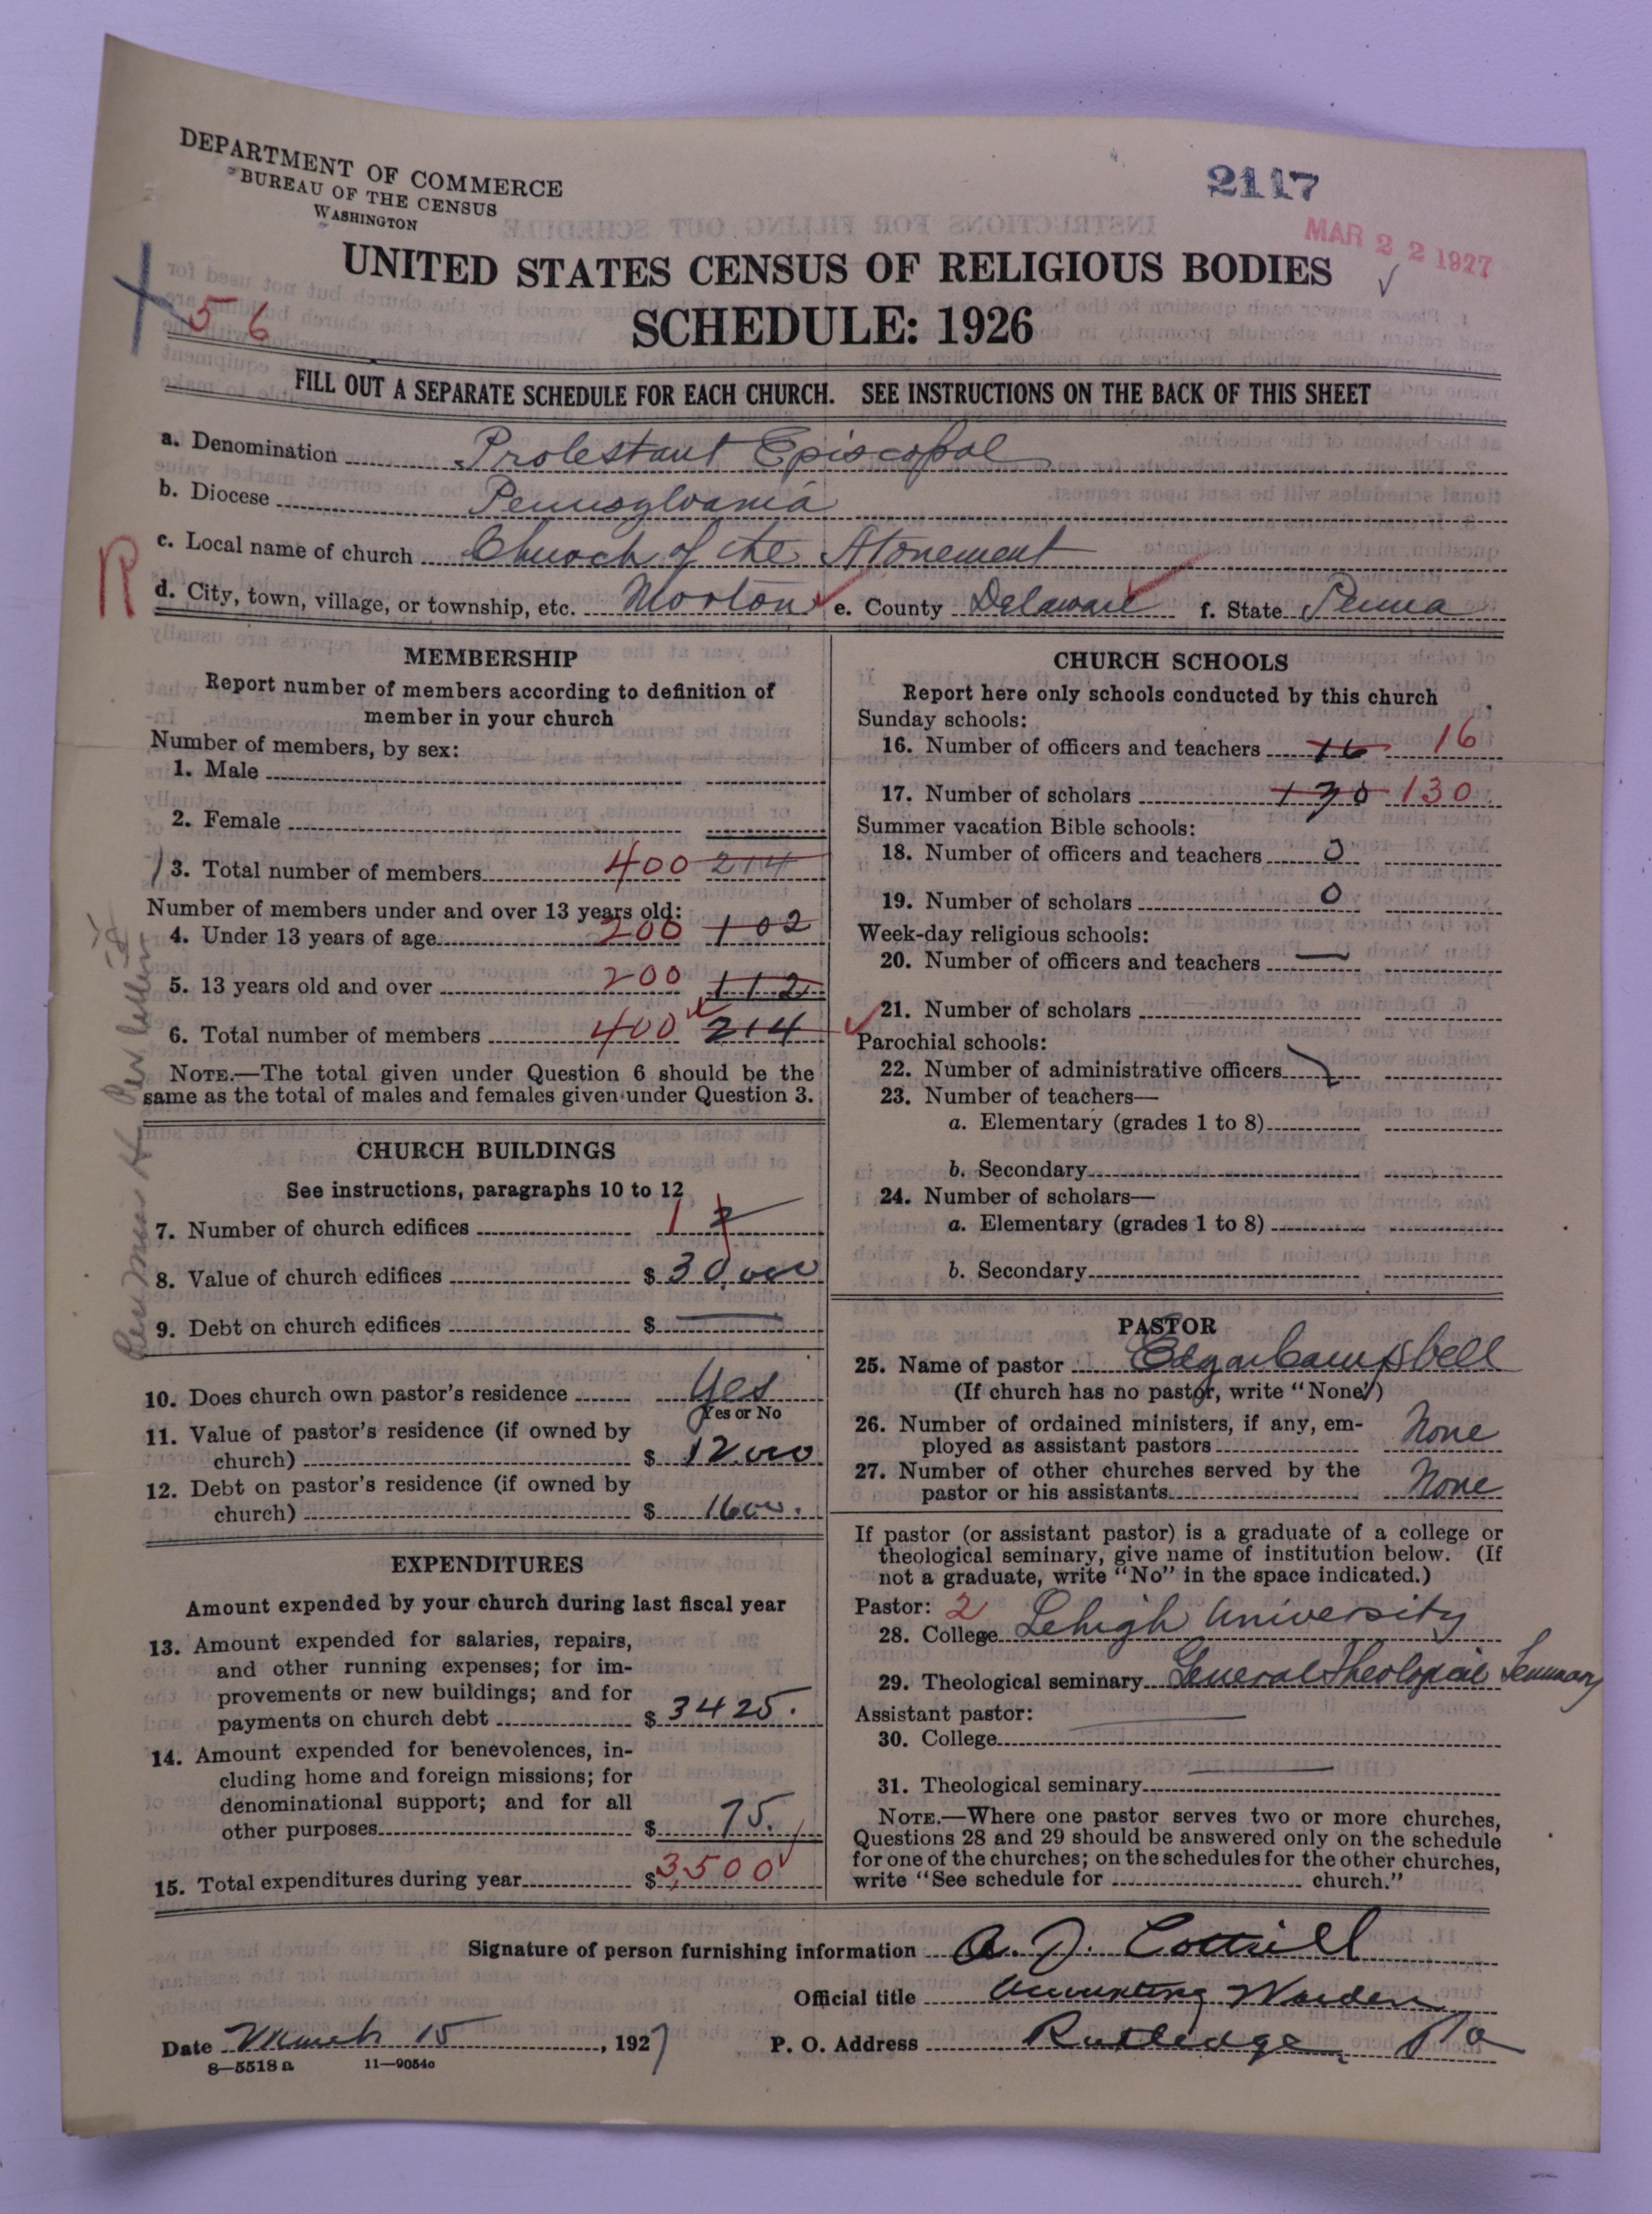 DEPARTMENT OF COMMERCE
BUREAU OF THE CENSUS
WASHINGTON
2117
MAR 22 1927
UNITED STATES CENSUS OF RELIGIOUS BODIES
56
SCHEDULE: 1926
FILL OUT A SEPARATE SCHEDULE FOR EACH CHURCH. SEE INSTRUCTIONS ON THE BACK OF THIS SHEET
a. Denomination Protestant Episcopal
b. Diocese Pennsylvania
c. Local name of church Church of the Atonement
R
d. City, town, village, or township, etc. Morton e. County Delaware f. State Penna
MEMBERSHIP
Report number of members according to definition of
member in your church
Number of members, by sex:
1. Male
2. Female
3. Total number of members 400 214
Number of members under and over 13 years old:
4. Under 13 years of age 200 102
5. 13 years old and over 200 112
6. Total number of members 400 214
NOTE.—The total given under Question 6 should be the
same as the total of males and females given under Question 3.
CHURCH BUILDINGS
See instructions, paragraphs 10 to 12
7. Number of church edifices 1 2
8. Value of church edifices $ 30,000
9. Debt on church edifices $
10. Does church own pastor's residence Yes
Yes or No
11. Value of pastor's residence (if owned by
church) $ 12000
12. Debt on pastor's residence (if owned by
church) $ 1600.
EXPENDITURES
Amount expended by your church during last fiscal year
13. Amount expended for salaries, repairs,
and other running expenses; for im-
provements or new buildings; and for
payments on church debt $ 3425.
14. Amount expended for benevolences, in-
cluding home and foreign missions; for
denominational support; and for all
other purposes $ 75.
15. Total expenditures during year $ 3,500
CHURCH SCHOOLS
Report here only schools conducted by this church
Sunday schools:
16. Number of officers and teachers 16 16
17. Number of scholars 130 130
Summer vacation Bible schools:
18. Number of officers and teachers 0
19. Number of scholars 0
Week-day religious schools:
20. Number of officers and teachers —
21. Number of scholars
Parochial schools:
22. Number of administrative officers
23. Number of teachers—
a. Elementary (grades 1 to 8)
b. Secondary
24. Number of scholars—
a. Elementary (grades 1 to 8)
b. Secondary
PASTOR
25. Name of pastor Edgar Campbell
(If church has no pastor, write "None")
26. Number of ordained ministers, if any, em-
ployed as assistant pastors None
27. Number of other churches served by the
pastor or his assistants None
If pastor (or assistant pastor) is a graduate of a college or
theological seminary, give name of institution below. (If
not a graduate, write "No" in the space indicated.)
Pastor: 2
28. College Lehigh University
29. Theological seminary General Theological Seminary
Assistant pastor:
30. College
31. Theological seminary
NOTE.—Where one pastor serves two or more churches,
Questions 28 and 29 should be answered only on the schedule
for one of the churches; on the schedules for the other churches,
write "See schedule for church."
Signature of person furnishing information A. J. Cottrell
Official title Accounting Warden
Date March 15, 1927 P. O. Address Rutledge, Pa
8—5518 a 11—9054c